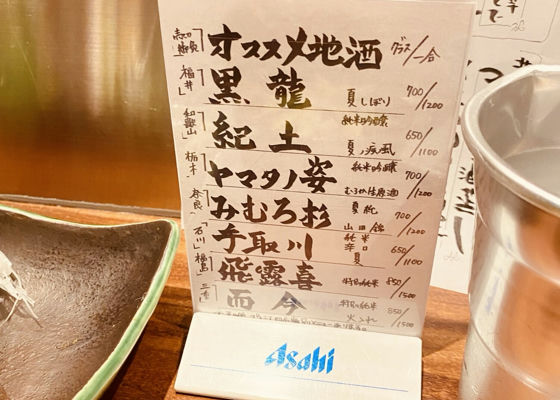 オススメ地酒 グラス/一合
福井 黒龍 夏しぼり 700/1200
和歌山 紀土 純米吟醸 夏ノ疾風 650/1100
栃木 ヤマタノ姿 純米吟醸 むろか生原酒 700/1200
奈良 みむろ杉 夏純 山田錦 700/1200
石川 手取川 純米 辛口 夏 650/1100
福島 飛露喜 特別純米 850/1500
三重 而今 特別純米 火入れ 850/1500
Asahi